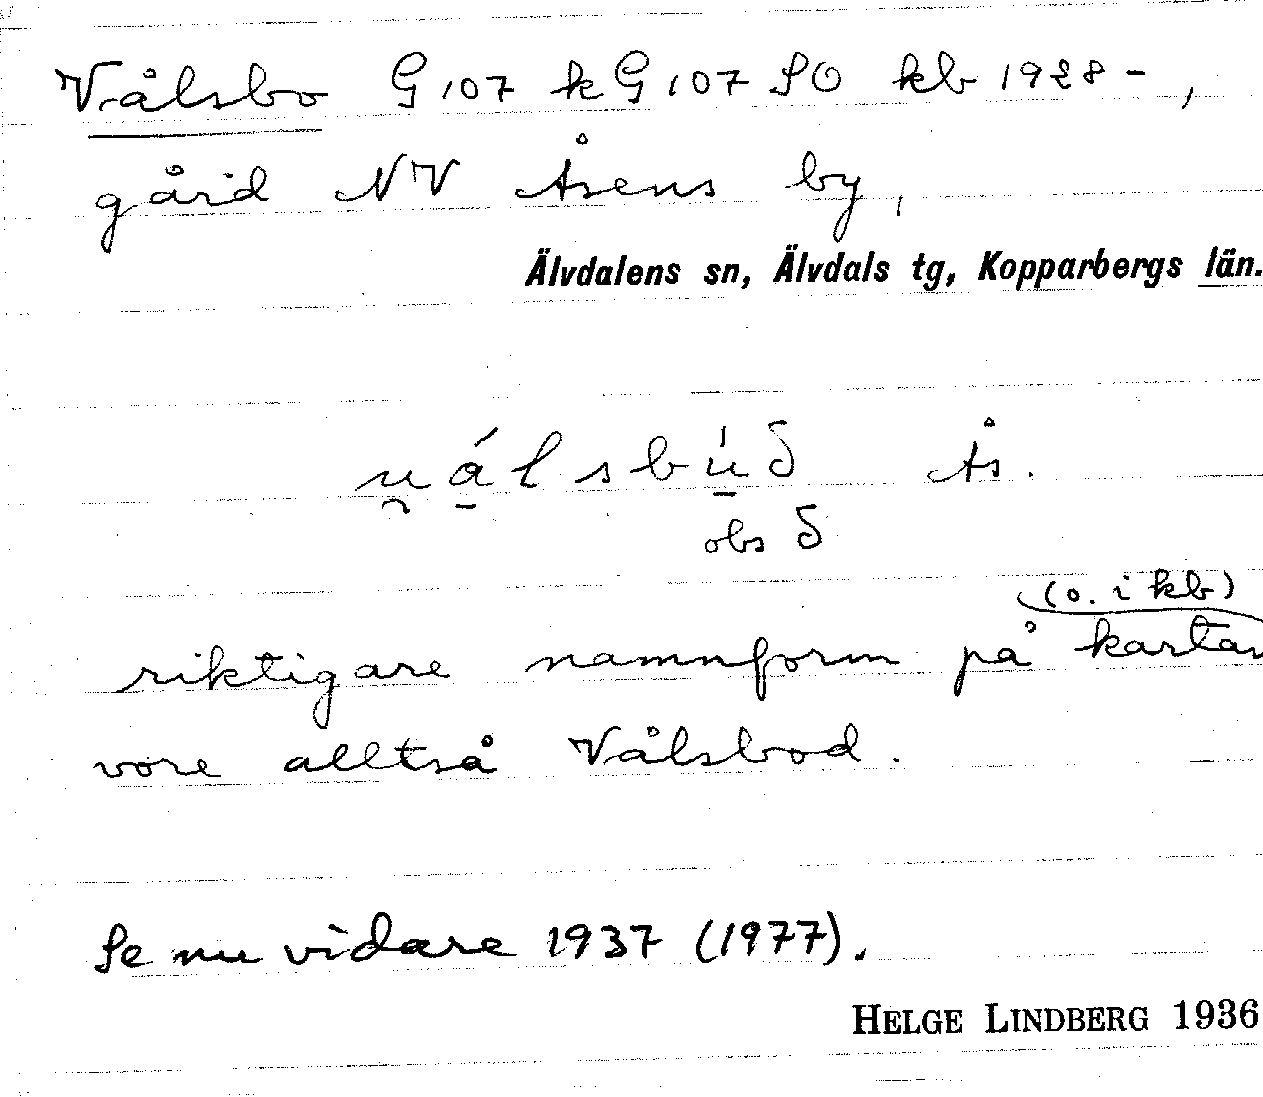 Vålsbo G 107 k G 107 SO kb 1928-,
gård NV Åsens by,
Älvdalens sn, Älvdals tg, Kopparbergs län.
u̯á̱lsbú̱δ Ås.
obs δ
(o. i kb)
riktigare namnform på kartan
vore alltså Vålsbod.
Se nu vidare 1937 (1977).
HELGE LINDBERG 1936